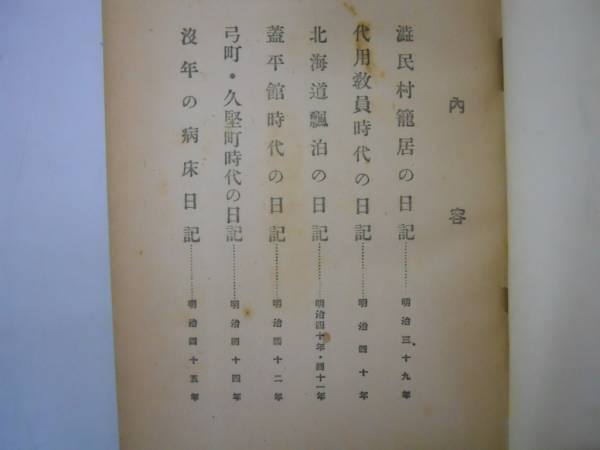 內容
澁民村籠居の日記…………明治三十九年
代用敎員時代の日記…………明治四十年
北海道飄泊の日記…………明治四十年・四十一年
蓋平館時代の日記…………明治四十二年
弓町・久堅町時代の日記…………明治四十四年
沒年の病床日記…………明治四十五年